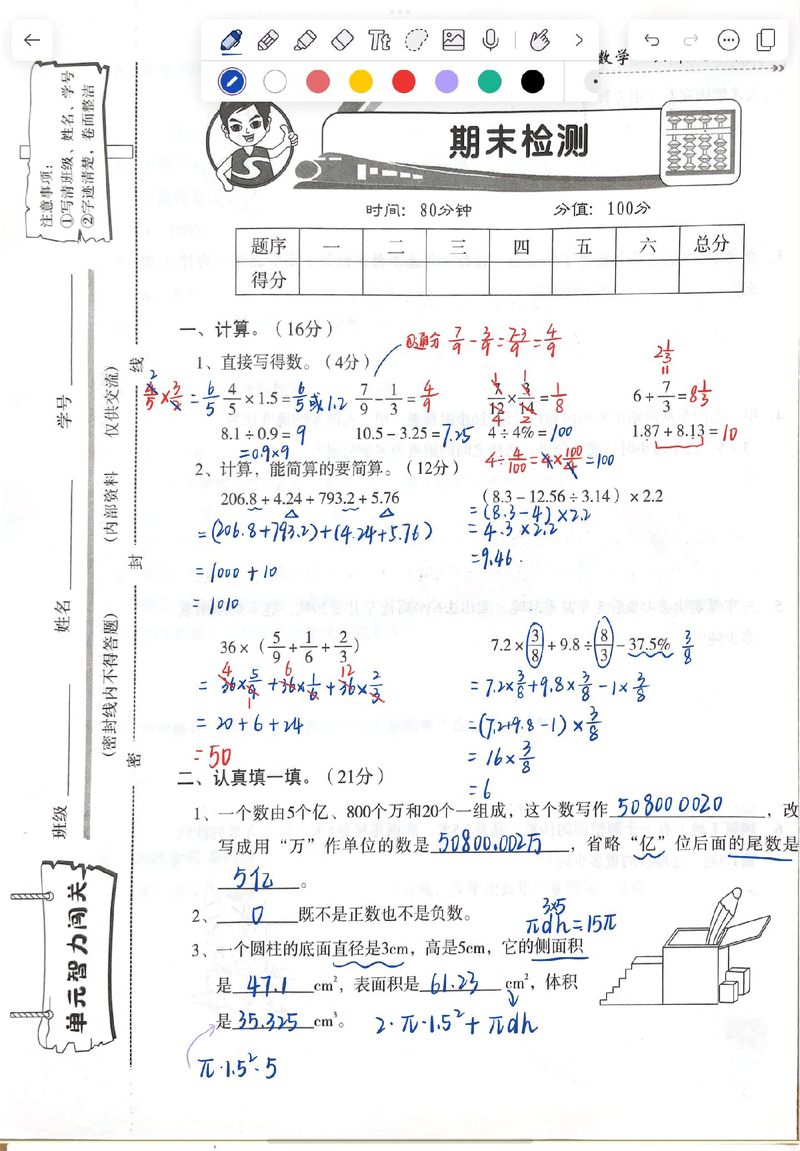 Tt
数学
期末检测
时间：80分钟 分值：100分
题序 一 二 三 四 五 六 总分
得分
注意事项：
①写清班级、姓名、学号
②字迹清楚，卷面整洁
学号
姓名
班级
(内部资料 仅供交流)
(密封线内不得答题)
密 封 线
单元智力闯关
一、计算。（16分）
①通分 7/9 - 3/9 = 7-3/9 = 4/9
1、直接写得数。（4分）
2 1/3
=
4/5 × 3/2 = 6/5
2
4/5 × 1.5 = 6/5 或 1.2
7/9 - 1/3 = 4/9
7/12 × 3/14 = 1/8
1 1
4 2
6 + 7/3 = 8 1/3
8.1 ÷ 0.9 = 9
10.5 - 3.25 = 7.25
4 ÷ 4% = 100
1.87 + 8.13 = 10
= 0.9×9
4 ÷ 4/100 = 4 × 100/4 = 100
2、计算，能简算的要简算。（12分）
206.8 + 4.24 + 793.2 + 5.76
（8.3 - 12.56 ÷ 3.14）× 2.2
= (206.8+793.2)+(4.24+5.76)
= (8.3-4)×2.2
= 1000 + 10
= 4.3×2.2
= 1010
= 9.46.
36 ×（5/9 + 1/6 + 2/3）
7.2 × 3/8 + 9.8 ÷ 8/3 - 37.5% 3/8
4 6 12
= 36×5/9 + 36×1/6 + 36×2/3
1
= 7.2×3/8 + 9.8×3/8 - 1×3/8
= 20 + 6 + 24
= (7.2+9.8-1)×3/8
= 50
= 16×3/8
= 6
二、认真填一填。（21分）
1、一个数由5个亿、800个万和20个一组成，这个数写作 508000020，改
写成用“万”作单位的数是 50800.002万，省略“亿”位后面的尾数是
5亿。
2、0既不是正数也不是负数。
3×5
πdh=15π
3、一个圆柱的底面直径是3cm，高是5cm，它的侧面积
是 47.1 cm²，表面积是 61.23 cm²，体积
是 35.325 cm³。 2·π·1.5²+πdh
π·1.5²·5